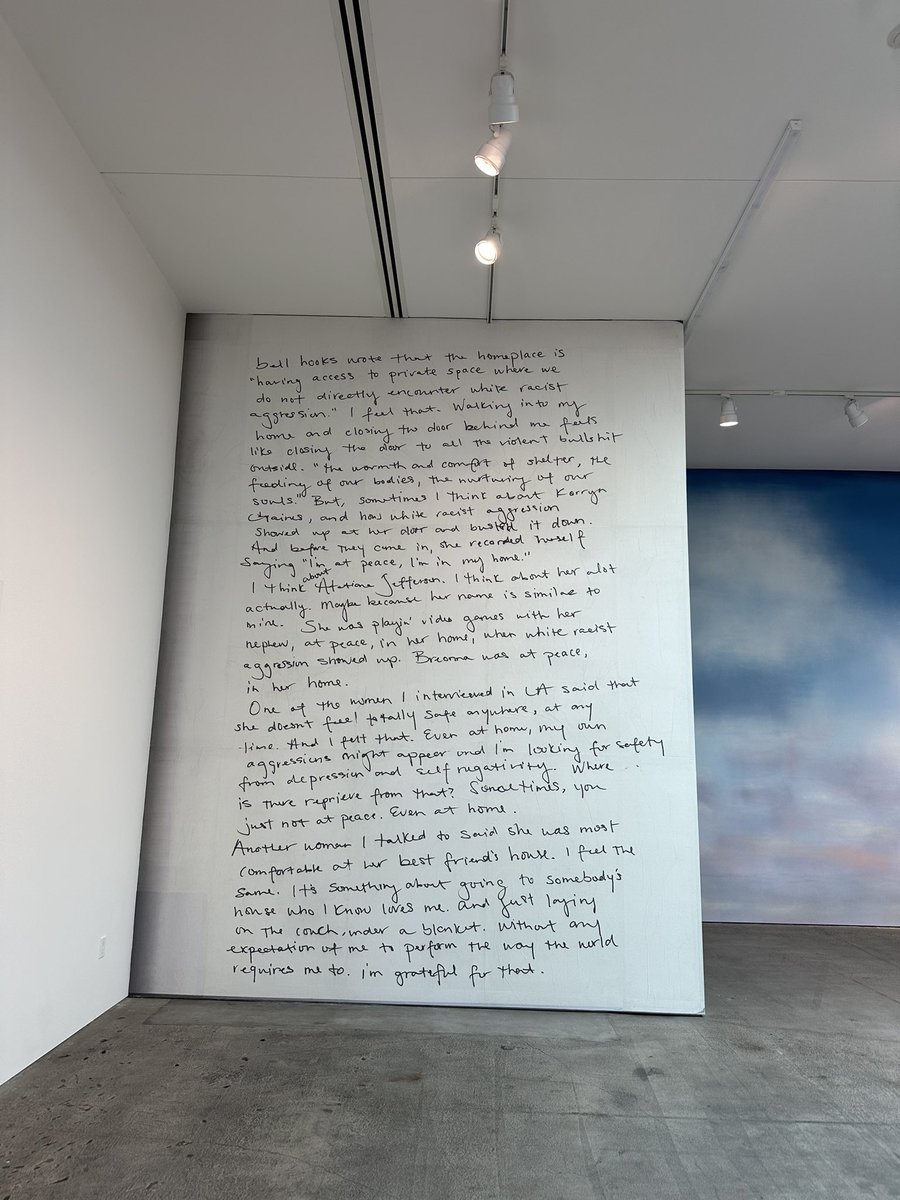 bell hooks wrote that the homeplace is
"having access to private space where we
do not directly encounter white racist
aggression." I feel that. Walking into my
home and closing the door behind me feels
like closing the door to all the violent bullshit
outside. "the warmth and comfort of shelter, the
feeding of our bodies, the nurturing of our
souls." But, sometimes I think about Korryn
Gaines, and how white racist aggression
showed up at her door and busted it down.
And before they came in, she recorded herself
saying "I'm at peace, I'm in my home."
I think about Atatiana Jefferson. I think about her alot
actually. Maybe because her name is similar to
mine. She was playin' video games with her
nephew, at peace, in her home, when white racist
aggression showed up. Breonna was at peace,
in her home.
One of the women I interviewed in LA said that
she doesn't feel totally safe anywhere, at any
time. And I felt that. Even at home, my own
aggressions might appear and I'm looking for safety
from depression and self negativity. Where . .
is there reprieve from that? Sometimes, you
just not at peace. Even at home.
Another woman I talked to said she was most
comfortable at her best friend's house. I feel the
same. It's something about going to somebody's
house who I know loves me. and just laying
on the couch, under a blanket. without any
expectation of me to perform the way the world
requires me to. i'm grateful for that.